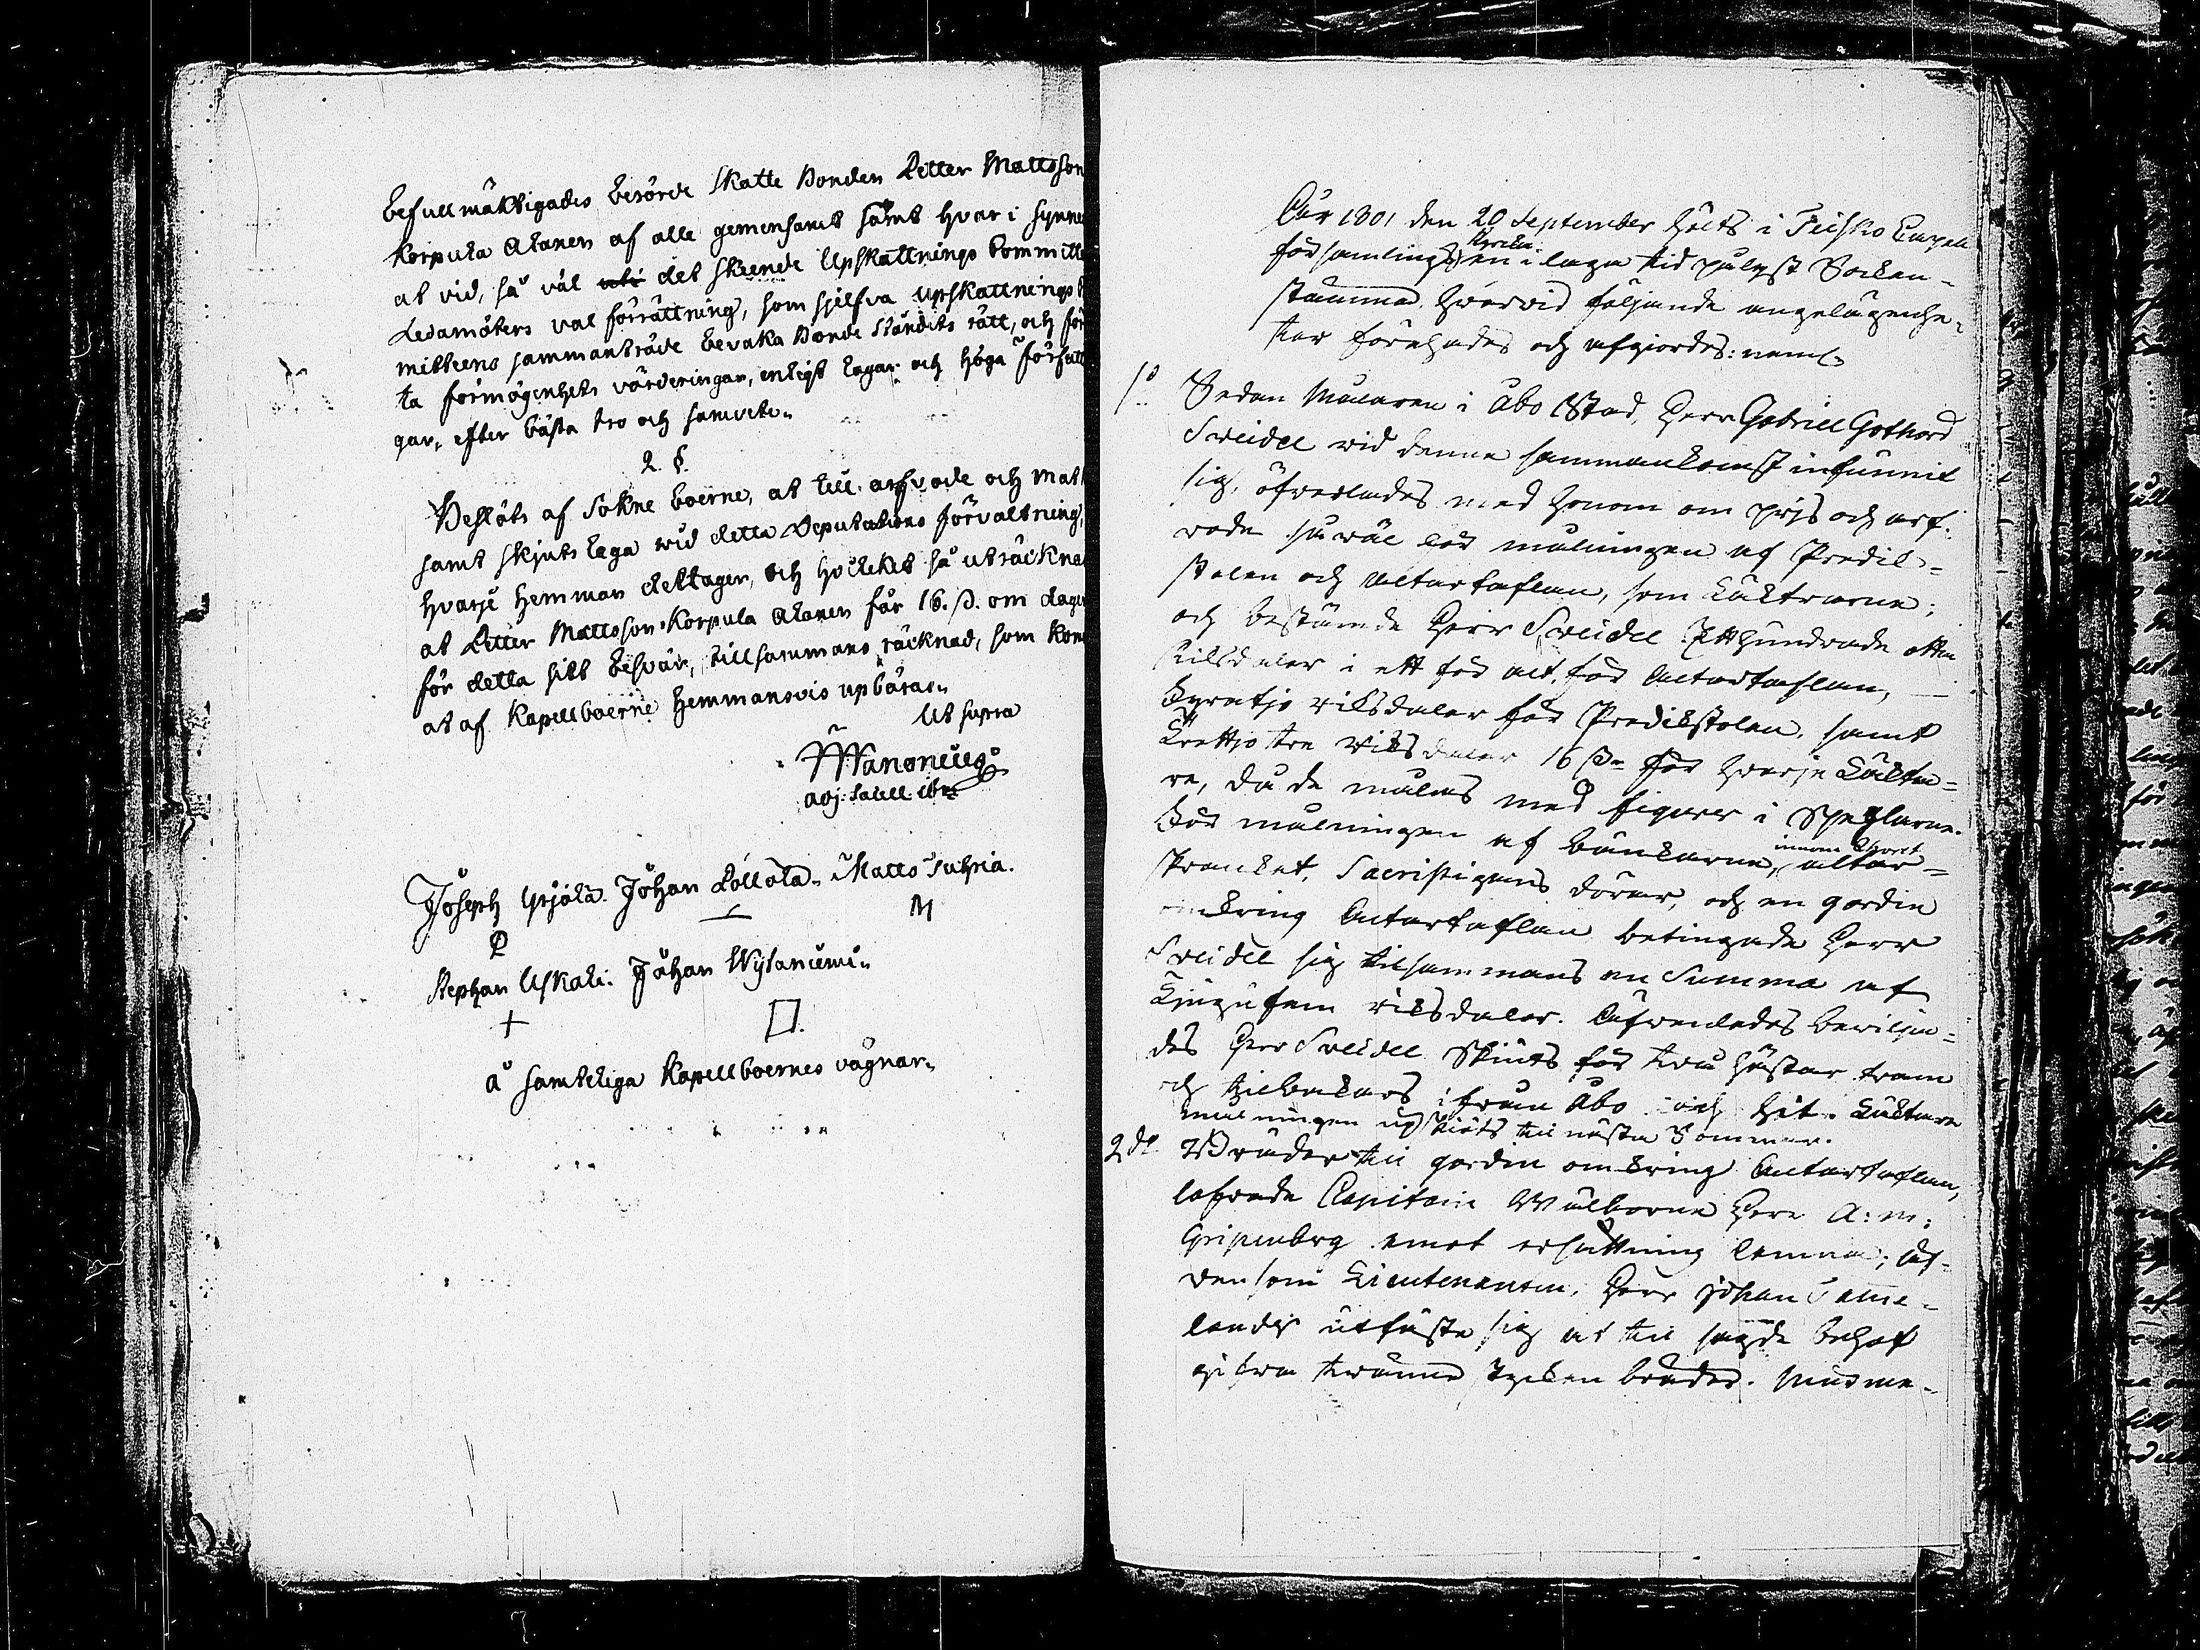 befullmäktigades berörde Skatte Bonden Petter Mattsson
Korpula Alanen af alla gemensamt samt hvar i synner
at vid, så väl det skeende Upskattnings Committe
Ledamöters val förrättning, som sjelfva upskattnings
mitteens sammanträde bevaka Bonde Ståndets rätt, och för
ta förmögenhets värderingar, enligt lagar och höga Författ
gar, efter bästa tro och samvete.
2. §.
Beslöts af Sokne boerne, at till arfvode och mat
samt skjuts lega wid detta Deputations förvaltning,
hvarje Hemman deltager, och hvilket så uträckna
at Petter Mattsson Korpula Alanen får 16. ß. om dagen
för detta sitt besvär, tillsammans räcknad, som kom
at af Kapellboerne Hemmansvis upbäras.
Ut supra
Wanonius
adj. Sacell. ibm
Joseph Yrjölä. Johan Pollola. Matts Suhria.
P M
Stephan Uskali. Johan Wytaniemi.
+
å samteliga Kapellboernes vägnar.
Åhr 1801 den 20 September hölts i Tuisko Capell
församlings Kyrka en i laga tid pulyst Socken-
stämma, hvarvid följande angelägenhe-
ter förehades och afgiordes: neml.
1o Sedan Målaren i Åbo Stad, Herr Gabriel Gothard
Sveidel vid denna sammankomst infunnit
sig, öfverlades med honom om pris och arf-
vode så väl för målningen af Predik-
stolen och Altartaflan, som Läktrarna;
och bestämde Herr Sveidel Etthundrade otta
Riksdaler i ett för alt, för Altartaflan,
Fyratjo riksdaler för Predikstolen, samt
Trettjo tre Riksdaler 16 ß. för hvarje Läkta-
re, då de målas med figurer i Speglarne.
För målningen af bänkarna, innom Choret altar-
skranket, Sacristigans dörar, och en gardin
omkring Altartaflan betingade Herr
Sveidel sig tilsammans en Summa af
Tjugufem riksdaler. Äfvenledes bevilja-
des Herr Sveidel Skiuts för två hästar fram
och tilbakars ifrån Åbo och hit. Läktare
målningen upskiöts till nästa Sommar.
2do Bräder till gardin omkring Altartaflan,
lofvade Capitain Wälborne Herr A: M:
Gripenberg emot ersättning lemna; äf-
ven som Lieutenanten, Herr Johan Tame-
lander utfäste sig at till sagde behof
gifva tvänne tycken bräder.